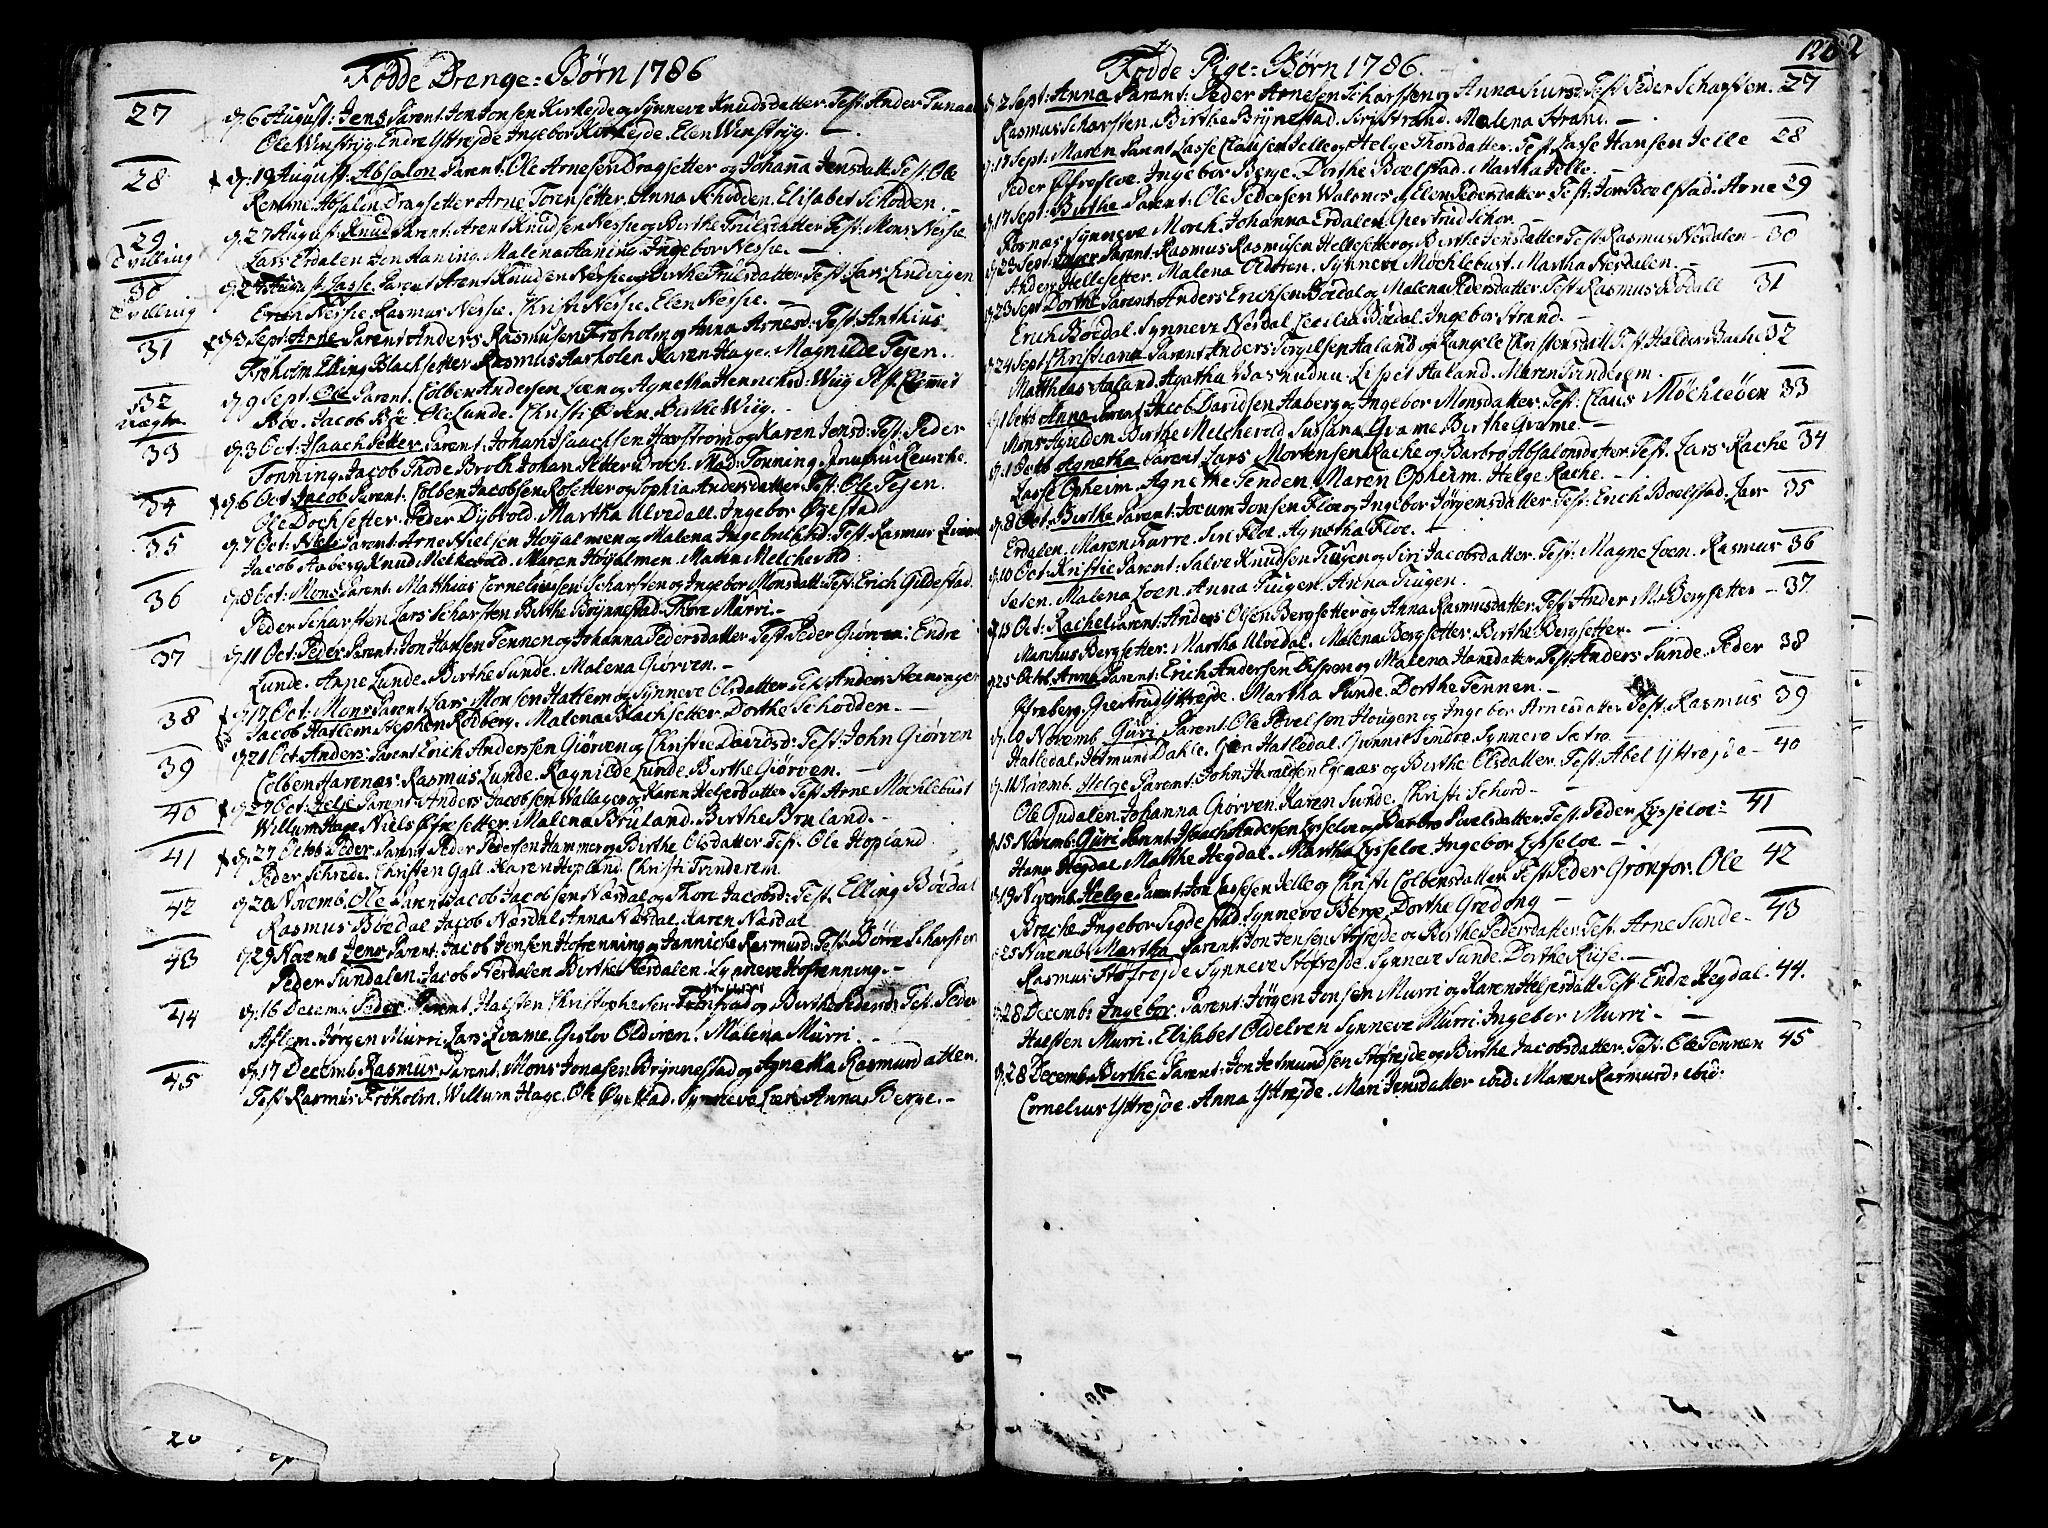 Fødde Drenge-Børn 1786
27 d. 6 August: Jens Parent: Jon Jonsen Kirkeide og Synneve Knudsdatter. Test: Ander
Ole Winsryg. Endre Ytrejde Ingebor Kirkeide. Elen Winsryg. —
28 d. 19 August. Absalon Parent. Ole Arnesen Dragsetter og Johanna Jensdatt. Test. Ole
Remme. Absalon Dragsetter. Arne Torensetter. Anna Schodden. Elisabet Schodden. —
29 d. 27 August: Knud Parent: Arent Knudsen Nessie og Berthe Frilsdatter Test: Mons Nessie
Tvilling Lars Erdalen Jon Haning. Malena Haning. Ingebor Nessie. —
30 d. 27 August: Lasse. Parent Arent Knudsen Nessie og Berthe Frilsdatter. Test. Lars
Tvilling Nessie. Rasmus Nessie. Christi Nessie. Elen Nessie. —
31 d. 3 Sept: Arne Parent Anders Rasmussen Frøholm og Anna Arnesd: Test: Anthius
Frøholm Elling Blachsetter Rasmus Aarholen Karen Hage. Magnilde Tejen.
32 d. 9 Sept. Ole Parent. Colben Andersen Loen og Agnetha Henrichsd: Wiig Test.
Bøe. Jacob Bøe. Ole Lunde. Christi Øven. Berthe Wiig. —
33 d. 3 Oct: Isaach Petter. Parent: Johan Isaachsen Harstrom og Karen Jensd: Test: Peder
Tonning. Jacob Thode Broch. Johan Petter Broch. Mad: Tonning.
34 d. 6 Oct. Jacob Parent: Colben Jacobsen Rosetter og Sophia Andersdatter. Test: Ole Tejen.
Ole Dochsetter. Peder Dybvold. Martha Ulvedall. Ingebor Øyestad
35 d. 7 Oct: Niels Parent: Arne Nielsen Høyalmen og Malena Ingebrichtsd: Test: Rasmus
Jacob Aaberg. Knud Melchevold. Maren Høyalmen. Malin Melchevold. —
36 d. 8 Oct: Mons Parent: Matthias Corneliussen Scharsten og Ingebor Monsdatt: Test: Erich Gildestad
Peder Scharsten Lars Scharsten Berthe Brynnestad. Thore Murri. —
37 d. 11 Oct: Peder Parent: Jon Hansen Tennen og Johanna Pedersdatter Test: Peder Giørven: Endre
Lunde. Arne Lunde. Berthe Sunde. Malena Giørven. —
38 d. 17 Oct. Mons Parent Lars Monsen Hatlem og Synneve Olsdatter Test. Anders
Jacob Hatlem. Stephen Rødberg. Malena Blachsetter. Dorthe Schodden. —
39 d. 21 Oct: Anders: Parent Erich Andersen Giørven og Christie Davidsd: Test: John Giørven
Colben Harenæs. Rasmus Lunde. Ragnilde Lunde. Berthe Giørven. —
40 d. 27 Oct. Helje Parent: Anders Jacobsen Wallager og Karen Heljesdatter Test Arne Møchlebust
Willum Hage Niels Øfresetter. Malena Bruland. Berthe Bruland. —
41 d. 27 Octob. Peder. Parent Peder Pedersen Hammer og Berthe Olsdatter. Test. Ole Hopland
Peder Schrede. Christen Gall. Karen Hopland. Christi Tvinderem.
42 d. 20 Novemb. Ole Parent Jacob Jacobsen Nærdal og Thore Jacobsd: Test. Elling Bøedal
Rasmus Bøedal Jacob Nærdal Anna Nærdal. Karen Nærdal
43 d. 29 Novemb Jens Parent. Jacob Jensen Hofrenning og Jannicke Rasmusd: Test: Børre Scharsten
Peder Sundalen. Jacob Nerdalen Berthe Nerdalen. Synneve Hofrenning. —
44 d. 16 Decemb. Peder Parent. Halsten Christophersen og Berthe Pedersd: Test. Peder
Aflem. Jørgen Murri. Lars Qvame. Gislov Oldiren. Malena Murri. —
45 d. 17 Decemb. Rasmus Parent. Mons Jonasen Brynnestad og Agnetha Rasmusdatter.
Test Rasmus Frøholm. Willum Hage. Ole Øyestad. Synneve Loen Anna Berge. —
Fødde Pige-Børn 1786.
d. 2 Sept: Anna Parent: Peder Arnesen Scharsten og Anna Test Peder Scharsten. 27
Rasmus Scharsten. Birthe Brynestad. Siri Strand. Malena Strand. —
d. 17 Sept: Maren Parent Lasse Clausen Jelle og Helge Thorsdatter. Test. Lasse Hansen Jelle 28
Peder Øfresloe. Ingebor Berge. Dorthe Boelstad. Martha Jelle.
d. 17 Sept: Berthe Parent: Ole Pedersen Walsnes og Elen Pedersdatter Test: Jon Boelstad. Arne 29
Rornæs Synneve Morch. Johanna Erdalen. Giertrud Schor. —
d. 23 Sept: Parent: Rasmus Rasmusen Hellesetter og Berthe Jensdatter Test: Rasmus Nesdalen — 30
Ander Hellesetter. Malena Oldiren. Synneve Møchlebust. Martha Nesdalen. —
d. 23 Sept Dorthe Parent: Anders Erichsen Bøedal og Malena Pedersdatter. Test Rasmus Bødall 31
Erich Bøedal. Synneve Nesdal. Cecilia Bøedal. Ingebor Strand. —
d. 24 Sept. Christiane Parent Anders Torgilsen Haland og Rangele Christensdatt Test. Haldor Bache 32
Matthias Haland. Agatha Lispet Haland. Maren Tvinderem.
d. 1 Octob. Anna Parent Jacob Davidsen Aaberg og Ingebor Monsdatter. Test: Claus Møchleøen 33
Mons Berthe Melchevold. Sussana Qvame. Berthe Qvame. —
d. 1 Octob Agnetha Parent Lars Mortensen Rache og Barbro Absalonsdatter. Test. Lars Rache 34
Lasse Opheim. Agnethe Tenden. Maren Opheim. Helge Rache. —
d. 8 Oct. Birthe Parent: Jocum Jonsen Floe og Ingebor Jørgensdatter. Test: Erich Boelstad. Lars 35
Erdalen. Maren Siri Floe. Agnetha Floe. —
d. 10 Oct: Kristie Parent: Salve Knudsen Tiugen og Siri Jacobsdatter. Test: Magne Loen. Rasmus 36
Malena Loen. Anna Tiugen. Anna Tiugen.
d. 15 Oct: Rachel Parent: Anders Olsen Bergsetter og Anna Rasmusdatter. Test Ander M. Bergsetter — 37.
Marchus Bergsetter. Martha Ulvedal. Malena Bergsetter. Birthe Bergsetter. —
d. 25 Octob. Anna Parent: Erich Andersen og Malena Hansdatter. Test Anders Sunde. Peder 38
Øfrebereg. Giertrud Ytrejde. Martha Sunde. Dorthe Tennen. —
d. Novemb. Guri Parent: Ole Povelsen Hougen og Ingebor Arnesdatter Test: Rasmus 39
Hatledal. Jetmund Dahle. Hatledal. Gunnil Sindre. Synneve Sætre —
d. Novemb. Helge Parent: John Haraldsen Egenæs og Berthe Olsdatter. Test. Abel Ytrejde — 40
Ole Gudalen. Johanna Giørven. Karen Sunde. Christi Schord —
d. 15 Novemb. Guri Parent: Isaach Andersen Lysseloe og Barbro Paulsdatter. Test. Peder Lysseloe: 41
Hans Hegdal Malthe Hegdal. Martha Lysseloe. Ingebor Lysseloe —
d. 19 Novemb. Helge Parent. Jon Lassesen Jelle og Christi Colbensdatter. Test Peder Grønfor. Ole 42
Brache. Ingebor Sigdestad. Synneve Berge. Dorthe Gredong —
d. 25 Novemb. Martha Parent. Jon Jensen Støfrejde og Berthe Pedersdatter. Test. Arne Sunde — 43
Rasmus Støfrejde Synneve Støfrejde. Synneve Sunde. Dorthe Riise. —
d. 28 Decemb: Ingebor Parent: Jørgen Jonsen Murri og Karen Heljesdatt Test. Endre Hegdal. 44.
Halsten Murri. Elisabet Oldelven Synneve Murri. Ingebor Murri — —
d. 28 Decemb. Berthe Parent: Jon Jetmundsen Støfrejde og Berthe Jacobsdatter. Test: Ole Tennen 45
Cornelius Ytrejde. Anna Ytrejde. Mari Jensdatter ibid: Maren Rasmusd: ibid:
20